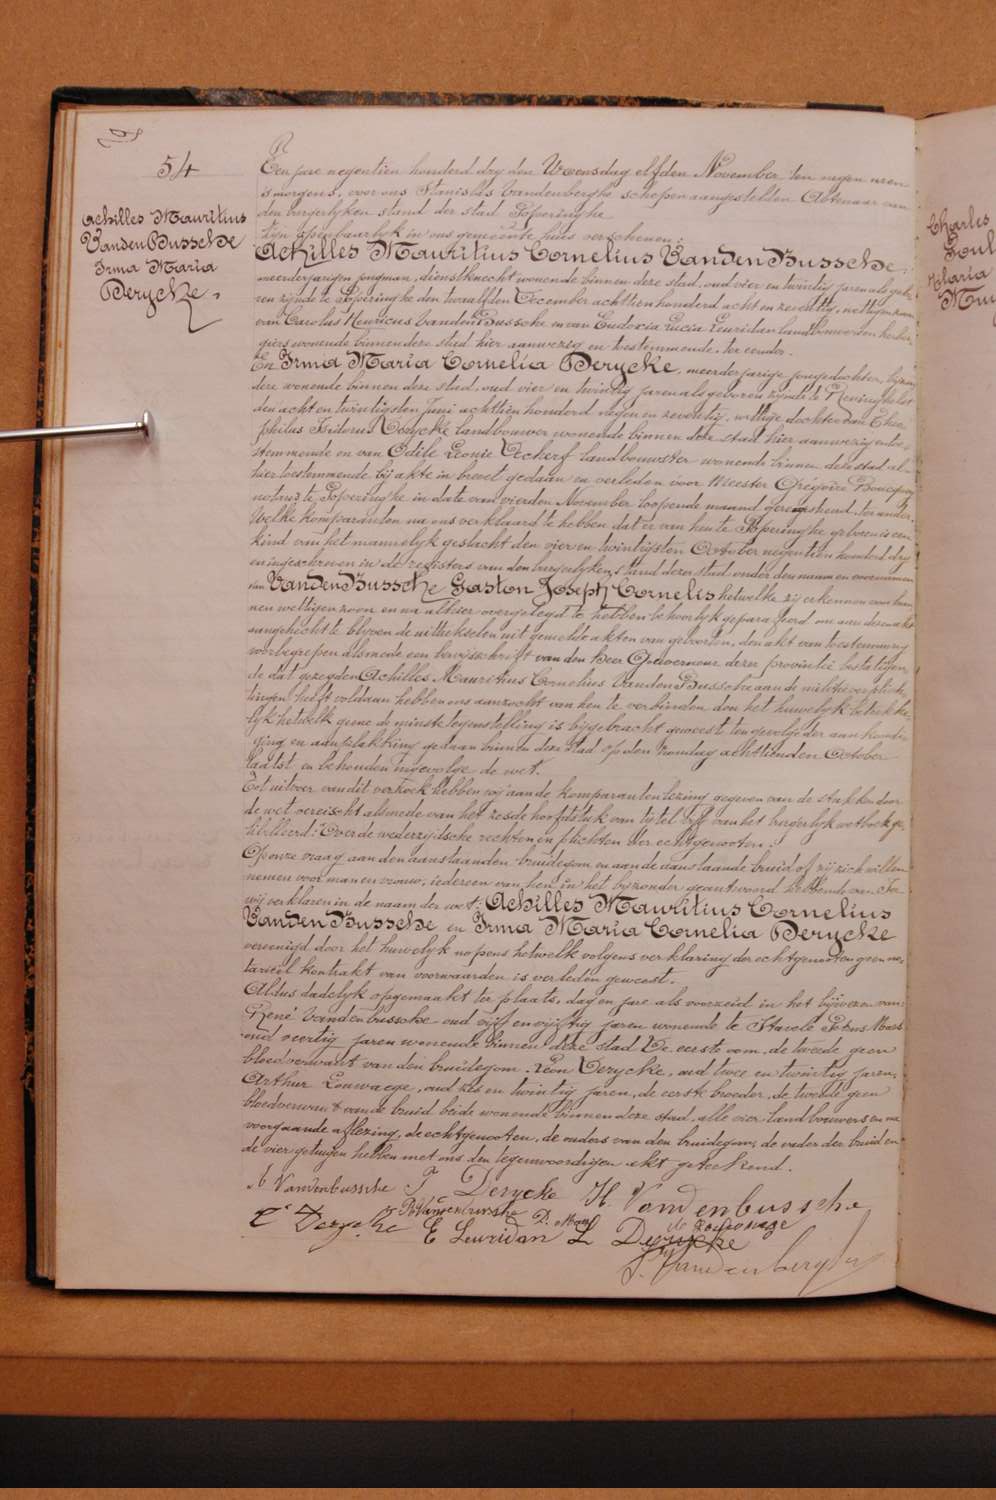 54
Achilles Mauritius
VandenBussche
Irma Maria
Derycke.
Een jare negentien honderd dry den Woensdag elfden November ten negen uren
is morgens, voor ons Stanislas Vandenberghe schepen aangestelden Ambtenaar van
den burgerlyken stand der stad Poperinghe
Zyn openbaarlyk in ons gemeente huis verschenen:
Achilles Mauritius Cornelius VandenBussche,
meerderjarigen jongman, dienstknecht wonende binnen deze stad, oud vier en twintig jaren als gebo-
ren zijnde te Poperinghe den twaalfden December achttien honderd acht en zeventig, wettigen zoon
van Carolus Henricus VandenBussche en van Eudoxia Lucia Leuridan landbouwers en herber-
giers wonende binnen deze stad hier aanwezig en toestemmende. ter eender.
En Irma Maria Cornelia Derycke, meerderjarige jongedochter, byzon-
dere wonende binnen deze stad, oud vier en twintig jaren als geboren zijnde te Reninghelst
den acht en twintigsten Juni achttien honderd negen en zeventig, wettige dochter van Theo-
philus Isidorus Derycke landbouwer wonende binnen deze stad hier aanwezig en toe-
stemmende en van Odile Leonie Deckerf landbouwster wonende binnen deze stad al-
hier toestemmende bij akte in brevet gedaan en verleden voor Meester Grégoire Boucquey
notaris te Poperinghe in date van vierden November loopende maand geregistreerd. ter ander.
Welke komparanten na ons verklaard te hebben dat er van hen te Poperinghe geboren is een
kind van het mannelyk geslacht den vier en twintigsten October negentien honderd dry
en ingeschreven in de registers van den burgerlyken stand dezer stad onder den naam en voornamen
van VandenBussche Gaston Joseph Cornelis hetwelke zij erkennen voor hun-
nen wettigen zoon en na alhier overgelegd te hebben behoorlyk geparafeerd om aan deze akt
aangehecht te blyven de uittrekselen uit gemelde akten van geboorten, den akt van toestemming
voorbegrepen alsmede een bewysschrift van den Heer Gouverneur dezer provintie bestatigen-
de dat gezegden Achilles Mauritius Cornelius VandenBussche aan de militie verplich-
tingen heeft voldaan hebben ons aanzocht van hen te verbinden door het huwelyk betrekke-
lyk hetwelk geene de minste tegenstelling is bijgebracht geweest ten gevolge der aankondi-
ging en aanplakking gedaan binnen deze stad op den zondag achttienden October
laatst en behouden ingevolge de wet.
Tot uitvoer van dit verzoek hebben wij aan de komparanten lezing gegeven van de stukken door
de wet vereischt alsmede van het zesde hoofdstuk van tytel vijf van het burgerlyk wetboek ge-
tituleerd: "Over de wederzijdsche rechten en plichten der echtgenooten:
Op onze vraag aan den aanstaanden bruidegom en aan de aanstaande bruid of zij zich willen
nemen voor man en vrouw; iedereen van hen in het byzonder geantwoord hebbende van Ja
wij verklaren in de naam der wet: Achilles Mauritius Cornelius
VandenBussche en Irma Maria Cornelia Derycke
vereenigd door het huwelyk nopens hetwelk volgens verklaring der echtgenooten geen no-
tarieel kontrakt van voorwaarden is verleden geweest.
Aldus dadelyk opgemaakt ter plaats, dag en jare als voorzeid in het bijwezen van:
René Vandenbussche oud vijf en vijftig jaren wonende te Stavele Petrus Maes
oud veertig jaren wonende binnen deze stad De eerste oom, de tweede geen
bloedverwant van den bruidegom. Léon Derycke, oud twee en twintig jaren,
Arthur Louwaege, oud zes en twintig jaren, de eerste broeder, de tweede geen
bloedverwant van de bruid beide wonende binnen deze stad, alle vier landbouwers en na
voorgaande aflezing, de echtgenooten, de ouders van den bruidegom, de vader der bruid en
de vier getuigen hebben met ons den tegenwoordigen akt geteekend.
A Vandenbussche I Derycke H. Vandenbussche
R Vandenbussche P. Maes
T. Derycke E Leuridan L Derycke
S. Vandenberghe
Charles
Maria